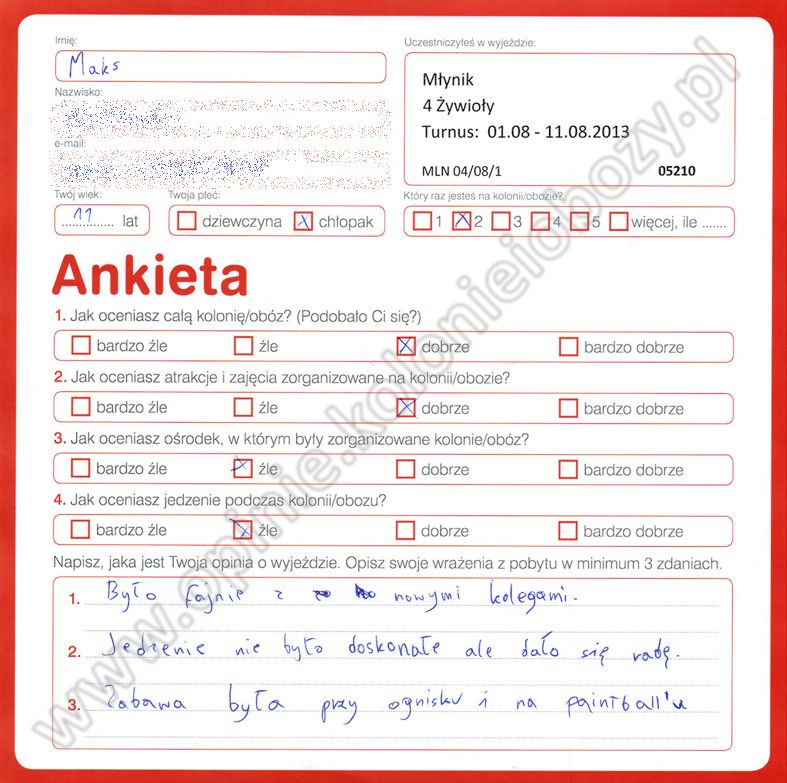 Imię:
Maks
Nazwisko:
e-mail:
Twój wiek:
11 lat
Twoja płeć:
dziewczyna chłopak
Uczestniczyłeś w wyjeździe:
Młynik
4 Żywioły
Turnus: 01.08 - 11.08.2013
MLN 04/08/1 05210
Który raz jesteś na kolonii/obozie?
1 2 3 4 5 więcej, ile .......
Ankieta
1. Jak oceniasz całą kolonię/obóz? (Podobało Ci się?)
bardzo źle źle dobrze bardzo dobrze
2. Jak oceniasz atrakcje i zajęcia zorganizowane na kolonii/obozie?
bardzo źle źle dobrze bardzo dobrze
3. Jak oceniasz ośrodek, w którym były zorganizowane kolonie/obóz?
bardzo źle źle dobrze bardzo dobrze
4. Jak oceniasz jedzenie podczas kolonii/obozu?
bardzo źle źle dobrze bardzo dobrze
Napisz, jaka jest Twoja opinia o wyjeździe. Opisz swoje wrażenia z pobytu w minimum 3 zdaniach.
1. Było fajnie z nowymi kolegami.
2. Jedzenie nie było doskonałe ale dało się radę.
3. Zabawa była przy ognisku i na paintball'u
www.opinie.kolonieiobozy.pl